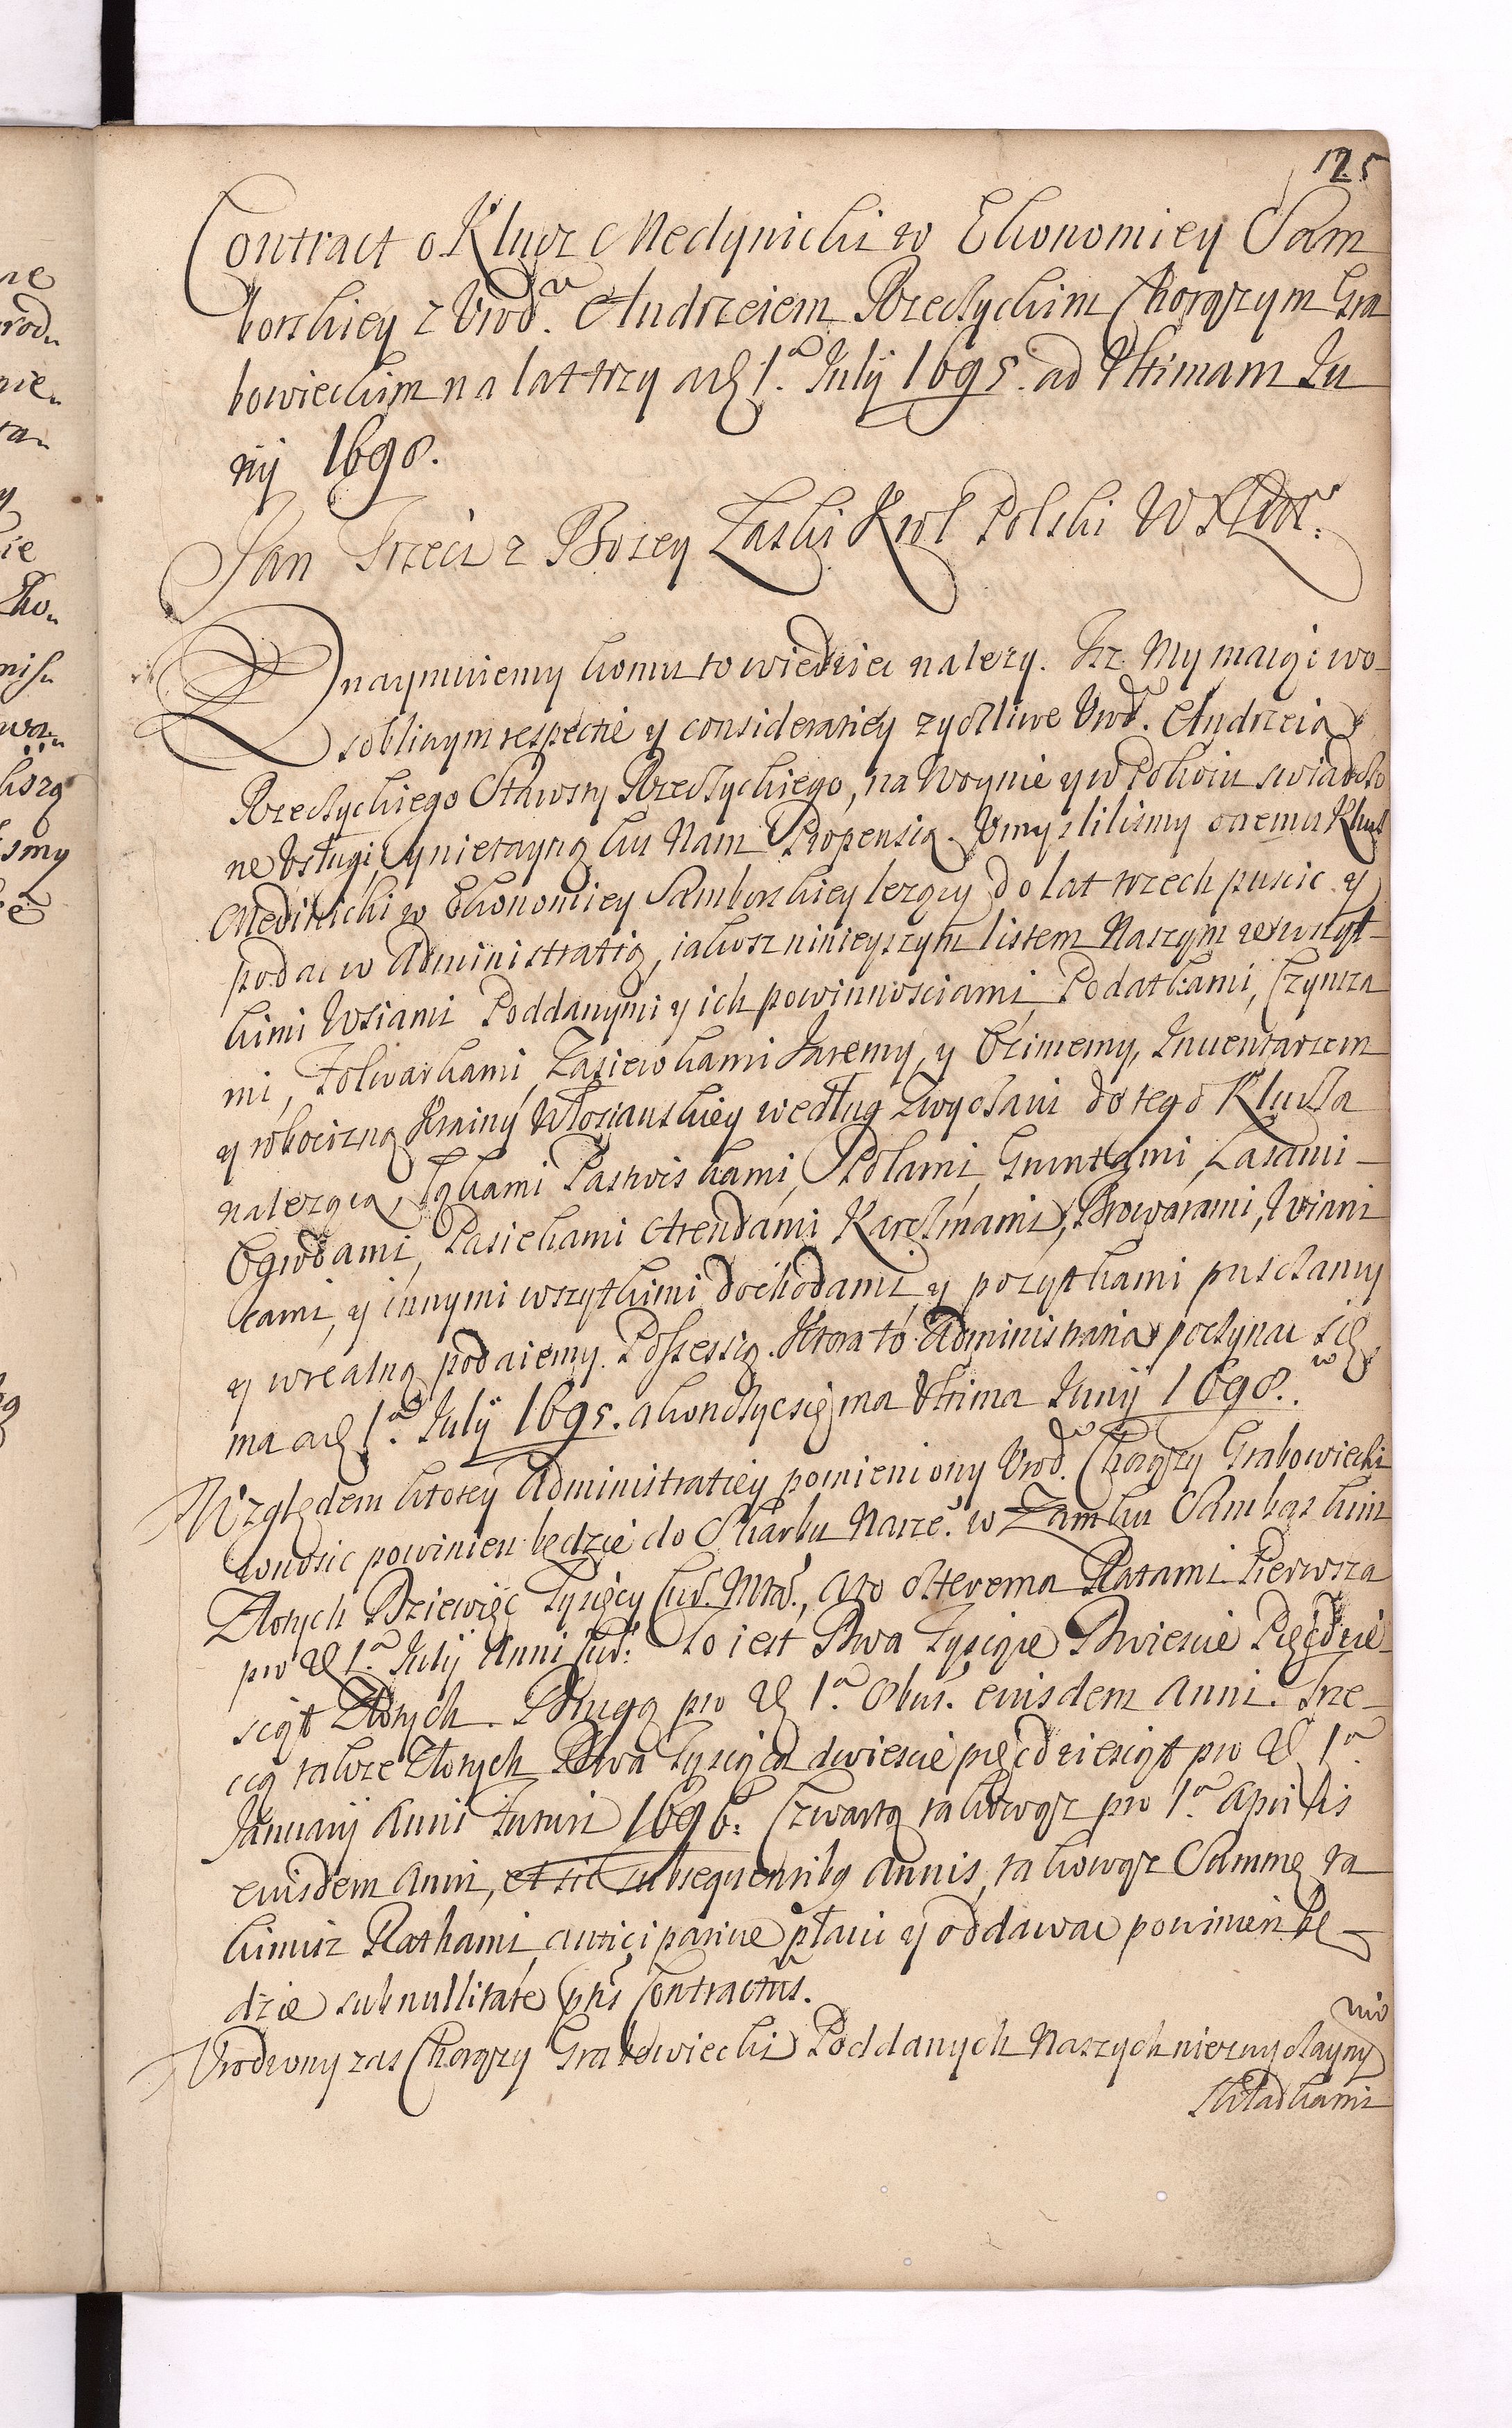 125
Contract o Klucz Medynicki w Ekonomiey Sam
borskiey z Urod. Andrzeiem Rzeczyckim Chorązym Gra
bowieckim na lat trzy a die 1.ma Julij 1695. ad Ultimam Ju
nij 1698.
Jan Trzeci z Bozey Łaski Krol Polski W X Litt.
Znaymuiemy komu to wiedziec nalezy. Jz My maiąc w o-
soblinym respectie y consideratiey zyczliwe Urod. Andrzeia
Rzeczyckiego Stawszy Rzeczyckiego, na Woynie y w Pokoiu swiadczo
ne Usługi, y nietayną ku Nam Propensią. Umyslilismy onemu Klucz
Medinicki w Ekonomiey Samborskiey lezący do lat trzech puscic y
podac w Administratią, iakosz ninieyszym listem Naszym ze wszyt-
kimi Wsiami Poddanymi y ich powinnosciami, Podatkami, Czynsza
mi, Folwarkami, Zasiewkami Jaremy, y Ozimemy, Inuentarzem
y robocizną Krainy Włosianskiey według Zwyczaiu do tego Klucza
nalezącą, Łąkami Pastwiskami, Polami, Gruntami, Lasami-
Ogrodami, Pasiekami Arendami Karczmami, Browarami, Winni
cami, y innymi wszytkimi dochodami, y pozytkami pusczamy
y w realną podaiemy. Possessią. Ktora to Administratia poczynac się
ma a die 1.ma Julij 1695. a konczyc się ma Ultima Junij 1698.
Względem ktorey Administratiey pomieniony Urod. Chorązy Grabowiecki
wnosic powinien będzie do Skarbu Nasze. w Zamku Samborskim
Złotych Dziewięc Tysięcy Cur. Mtae., a to czterema Ratami Pierwsza
pro die 1.ma Julij Anni Cur: to iest Dwa Tysiące Dwiescie Pięcdzie-
siąt Złotych. Drugą pro die 1.ma 8bris. eiusdem Anni. Trze-
cią takze Złotych Dwa Tysiąca dwiescie pięcdziesiąt pro die 1.ma
Januarij Anni Futuri 1696. Czwartą takowąz pro 1.ma Aprilis
eiusdem Anni, et sic subsequentibq Annis, takowąz Summę ta
kimisz Rathami, anticipatiue płacic y oddawac powinien bę-
dzie sub nullitate pntis Contractus.
Urodzony zas Chorązy Grabowiecki Poddanych Naszych niezwyczaynymi
Składkami